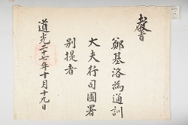 敎旨
鄭基洛爲通訓
大夫行司圃署
別提者
道光二十七年十月十九日